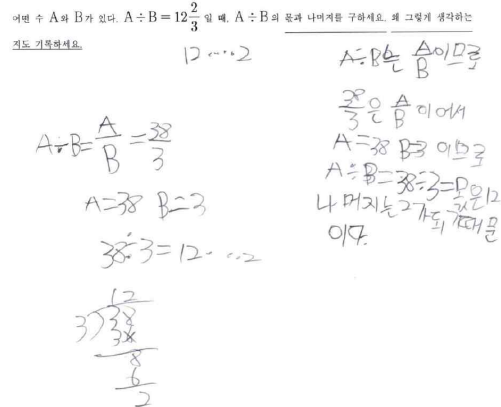 어떤 수 A와 B가 있다. A÷B = 12 2/3 일 때, A÷B의 몫과 나머지를 구하세요. 왜 그렇게 생각하는
지도 기록하세요.
12 ····· 2
A÷B = A/B = 38/3
A=38 B=3
38÷3=12 ····2
12
3)38
38
8
6
2
A÷B는 A/B이므로
38/3은 A/B이어서
A=38 B=3 이므로
A÷B=38÷3= 몫은12
나머지는 2가 되기 때문
이다.